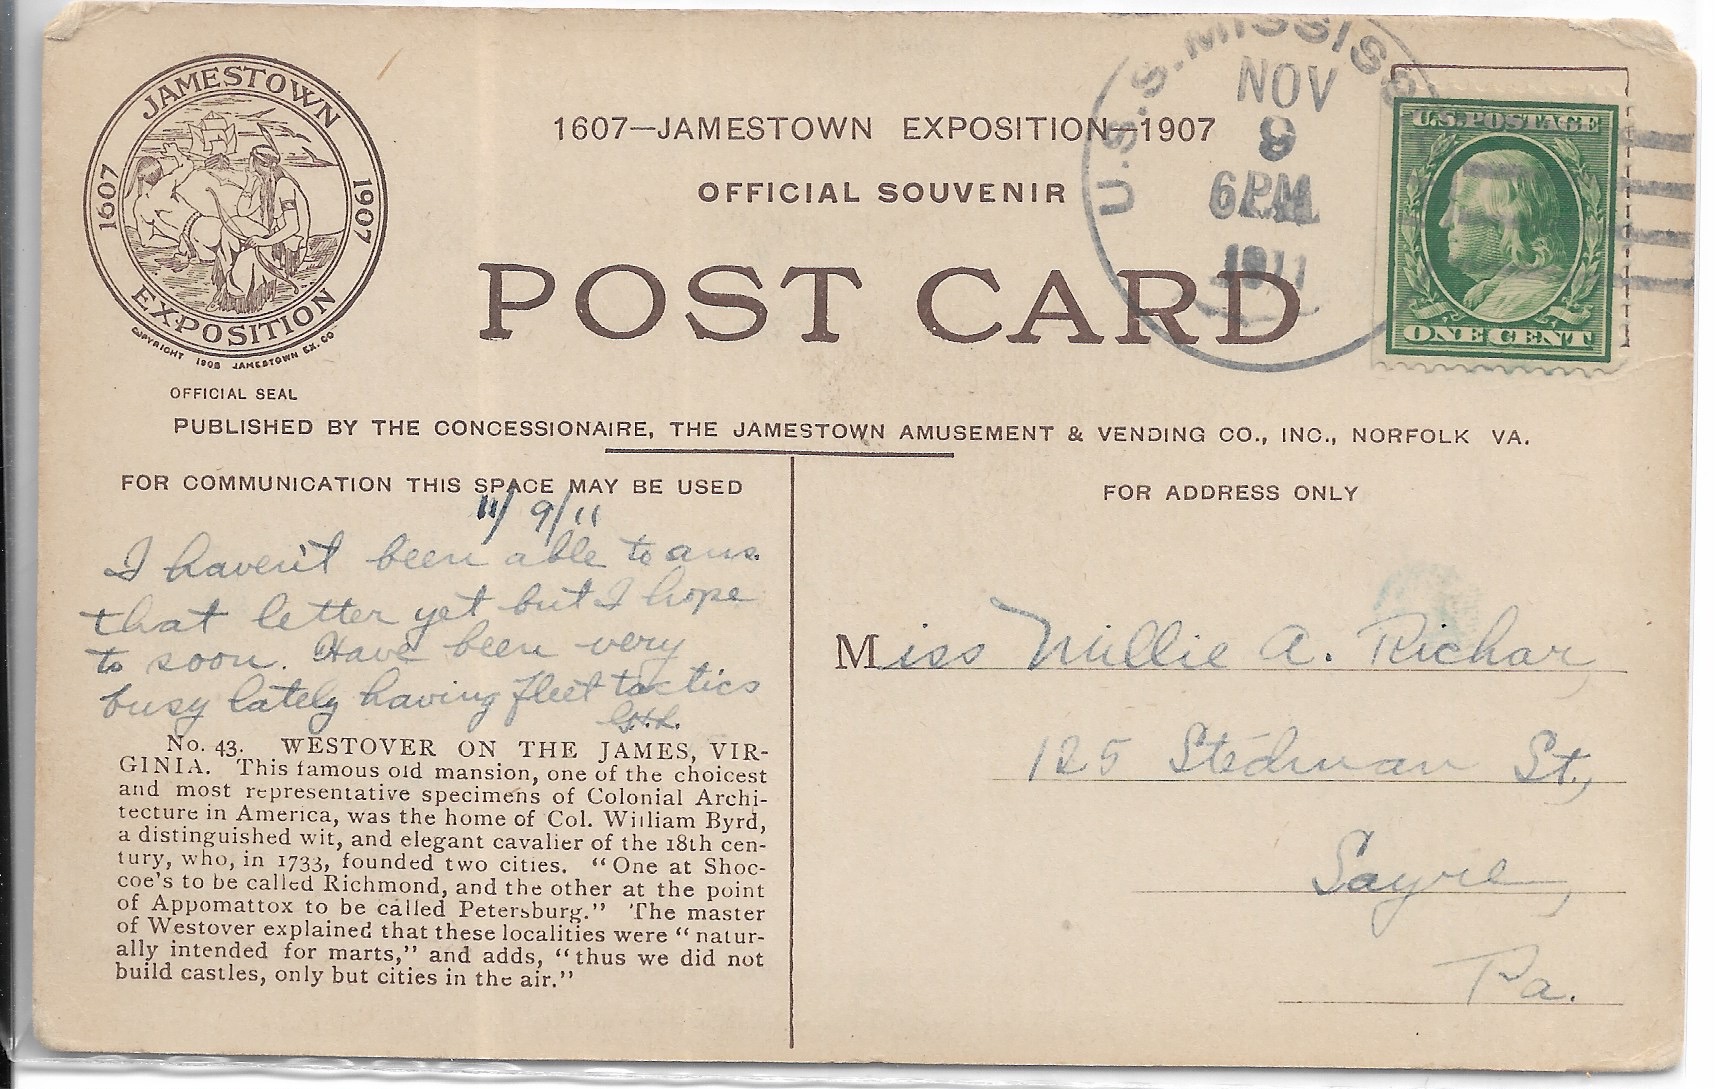 JAMESTOWN
1607 1907
EXPOSITION
COPYRIGHT 1905 JAMESTOWN EX. CO
OFFICIAL SEAL
1607—JAMESTOWN EXPOSITION—1907
OFFICIAL SOUVENIR
POST CARD
U.S.S. MISSISS
NOV
6 PM
1911
U.S. POSTAGE
ONE CENT
PUBLISHED BY THE CONCESSIONAIRE, THE JAMESTOWN AMUSEMENT & VENDING CO., INC., NORFOLK VA.
FOR COMMUNICATION THIS SPACE MAY BE USED
11/9/11
I haven't been able to ans.
that letter yet but I hope
to soon. Have been very
busy lately having fleet tactics
G.H.L.
No. 43. WESTOVER ON THE JAMES, VIR-
GINIA. This famous old mansion, one of the choicest
and most representative specimens of Colonial Archi-
tecture in America, was the home of Col. William Byrd,
a distinguished wit, and elegant cavalier of the 18th cen-
tury, who, in 1733, founded two cities. "One at Shoc-
coe's to be called Richmond, and the other at the point
of Appomattox to be called Petersburg." The master
of Westover explained that these localities were "natur-
ally intended for marts," and adds, "thus we did not
build castles, only but cities in the air."
FOR ADDRESS ONLY
Miss Millie A. Richar,
125 Stedman St,
Sayre,
Pa.